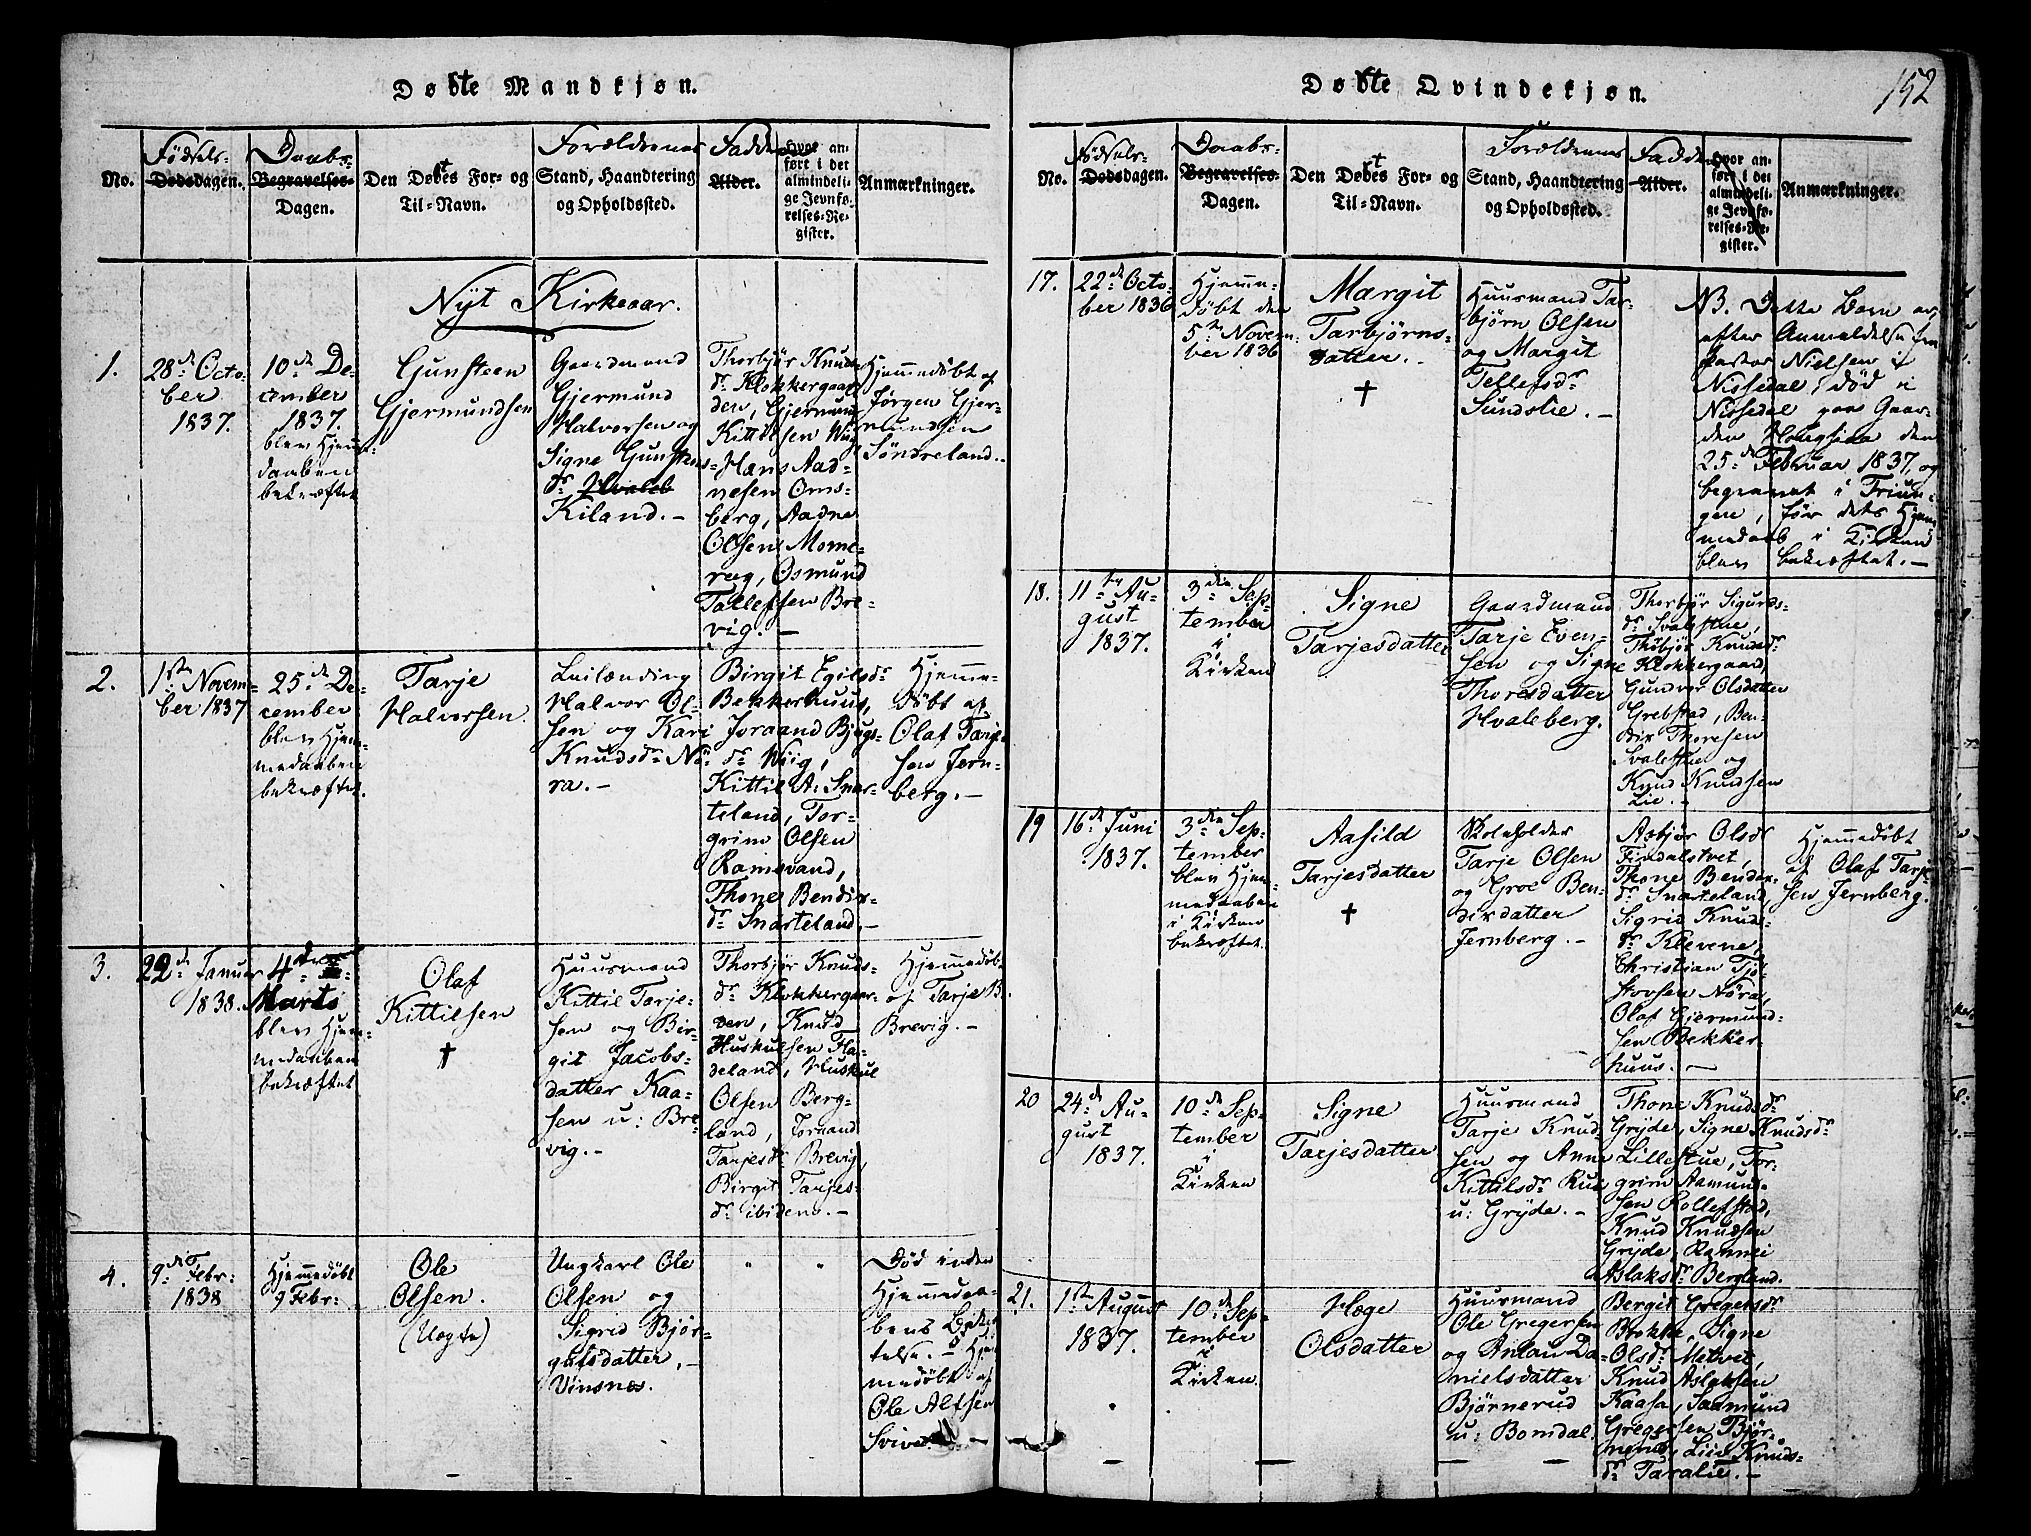 Døbte Mandkjøn.
No.
Fødsels-
Dødsdagen.
Daabs-
Begravelses-
Dagen.
Den Døbtes For- og
Til-Navn.
Forældrenes
Stand, Haandtering
og Opholdssted.
Fadd
Alder.
Hvor an-
ført i det
almindeli-
ge Jevnfø-
relses-Re-
gister.
Anmærkninger.
Nyt Kirkeaar.
1.
28de Octo-
ber
1837.
10de De-
cember
1837.
blev Hjem-
daaben
bekræftet
Gunsteen
Gjermundsen
Gaardmand
Gjermund
Halvorsen og
Signe Gunsteens-
dr. Hvaleb
Kiland. -
Thorbjør Knuds-
dr. Klokkergaar-
den, Gjermund
Kittilsen Wiig
Hans Aad-
nesen Oms-
berg, Aadne
Olsen Mome-
rag, Osmund
Tallefsen Bre-
vig. -
Hjemmedøbt af
Jørgen Gjer-
mundsen
Søndreland.
2.
1ste Novem-
ber 1837
25de De-
cember
blev Hjem-
medaaben
bekræftet.
Tarje
Halvorsen.
Leilænding
Halvor Ol-
sen og Kari
Knudsdr. No-
ra. -
Birgit Egilsdr.
Bekkerhuus,
Joraand Bjugs-
dr. Wiig,
Kittil A. Snar-
teland, Tor-
grim Olsen
Ramsvand,
Thone Bendix-
dr. Snarteland. -
Hjemme-
døbt af
Olaf Tarje-
sen Jern-
berg. -
3.
22de Januar
1838.
4de
Marts
blev Hjem-
medaaben
bekræftet
Olaf
Kittilsen
†
Huusmand
Kittil Tarje-
sen og Bir-
git Jacobs-
datter Kaa-
sen u: Bre-
vig. -
Thorbjør Knuds-
dr. Klokkergaar-
den, Knud
Huskulsen Fla-
deland, Huskul
Olsen Berg-
land, Joraand
Tarjesdr. Brevig,
Birgit Tarjes-
dr. ibidem. -
Hjemmedøbt
af Tarje B.
Brevig. -
4.
9de Febr:
1838
Hjemmedøbt
9 Febr:
Ole
Olsen.
(Uægte)
Ungkarl Ole
Olsen og
Sigrid Bjør-
gufsdatter, -
Vinsnes.
" "
Død inden
Hjemmedaa-
bens Bekræf-
telse. - Hjem-
medøbt af
Ole Alfsen
Døbte Qvindekjøn.
152
No.
Fødsels-
Dødsdagen.
Daabs-
Begravelses-
Dagen.
Den Døbtes For- og
Til-Navn.
Forældrenes
Stand, Haandtering
og Opholdssted.
Fadd
Alder.
Hvor an-
ført i det
almindeli-
ge Jevnfø-
relses-Re-
gister.
Anmærkninger.
17.
22de Octo-
ber 1836
Hjemme-
døbt den
5te Novem-
ber 1836
Margit
Tarbjørns-
datter. -
†
Huusmand Tar-
bjørn Olsen
og Margit
Tellefsdr.
Sundslie. -
NB. Dette Barn er
efter Anmeldelse fra
Pastor Nielsen i
Nissedal, død i
Nissedal paa Gaar-
den Hougsiaa den
25de Februar 1837, og
begravet i Treun-
gen, før dets Hjem-
medaab i Kirken
blev bekræftet. -
18.
11te Au-
gust
1837.
3die Sep-
tember
i
Kirken
Signe
Tarjesdatter
Gaardmand
Tarje Even-
sen og Signe
Thoresdatter
Hvaleberg.
Thorbjør Sigurds-
dr. Svalestue,
Thorbjør Knudsdr.
Klokkergaard,
Gundvor Olsdatter
Grebstad, Ben-
dix Thoresen
Svalestue og
Knud Knudsen
Lie. -
19
16de Juni
1837.
3die Sep-
tember
blev Hjem-
medaaben
i Kirken
bekræftet.
Aasild
Tarjesdatter
†
Skoleholder
Tarje Olsen
og Groe Ben-
dixdatter
Jernberg. -
Asbjør Olsdr
Findalstvet,
Thone Bendix-
dr. Snarteland,
Sigrid Knuds-
dr. Klevene,
Christian Tjø-
stovsen Nora,
Olaf Gjermund-
sen Bekker-
huus. -
Hjemmedøbt
af Olaf Tarje-
sen Jernberg.
20
24de Au-
gust
1837.
10de Sep-
tember
i
Kirken
Signe
Tarjesdatter
Huusmand
Tarje Knud-
sen og Anne
Kittilsdr. Rue
u: Gryde. -
Thone Knudsdr.
Gryde, Signe Knudsdr.
Lillestue, Tor-
grim Aamund-
sen Rollefstad,
Knud Knudsen
Gryde, Rannei
Aslaksdr. Bergland.
21.
1ste August
1837.
10de Sep-
tember
i
Kirken.
Hæge
Olsdatter
Huusmand
Ole Gregersen
og Anlaug Da-
nielsdatter
Bjørnerud
u: Bomdal.
Bergit Gregersdr.
Brokke, Signe
Olsdr. Metvet,
Knud Aslaksen
Kaasa, Saamund
Gregersen Bjør-
nerud, Live Knuds-
dr. Taralie. -